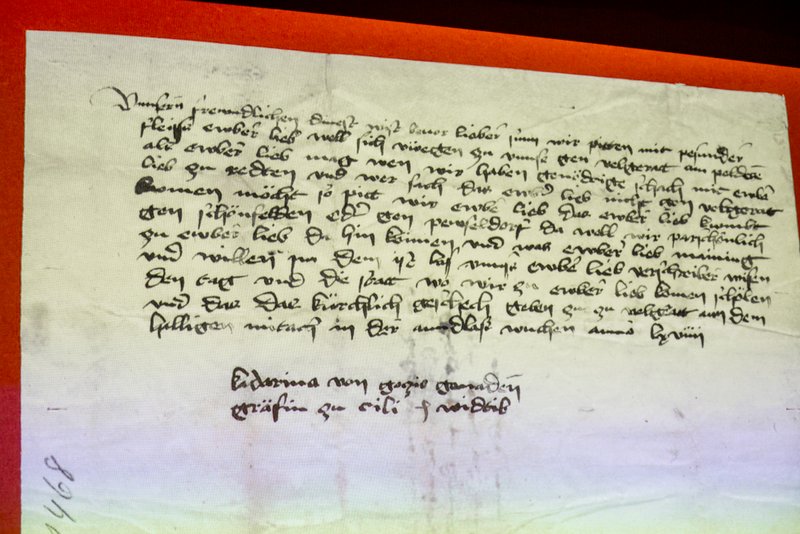 Vnnsern frewndlichen dinst wist bevor lieber sunn wir pitten mit pesunder
fleiss ewber lieb well sich vuegen zu vnnss gen veltgrat am
als ewber lieb mag wen wir haben genödige sach mit ewber
lieb zu redten vnd wer sach das ewber lieb nicht gen veltgrat
komen möcht so pitt wir ewbe lieb das ewber lieb kumbt
gen schönfelden oder gen da well wir parschönlich
zu ewber lieb da hin kömen vnd was ewber lieb maining
vnd willen in dem ist las vnnss ewbe lieb verschriben wissen
den tag vnd die stat wo wir zu ewber lieb komen schölen
vnd das das kürchlich geschech geben zu veltgrat an dem
halligen mitach in der wuchen anno lxviiii
katarina von gozis genaden
gräfin zu cili witib
1468